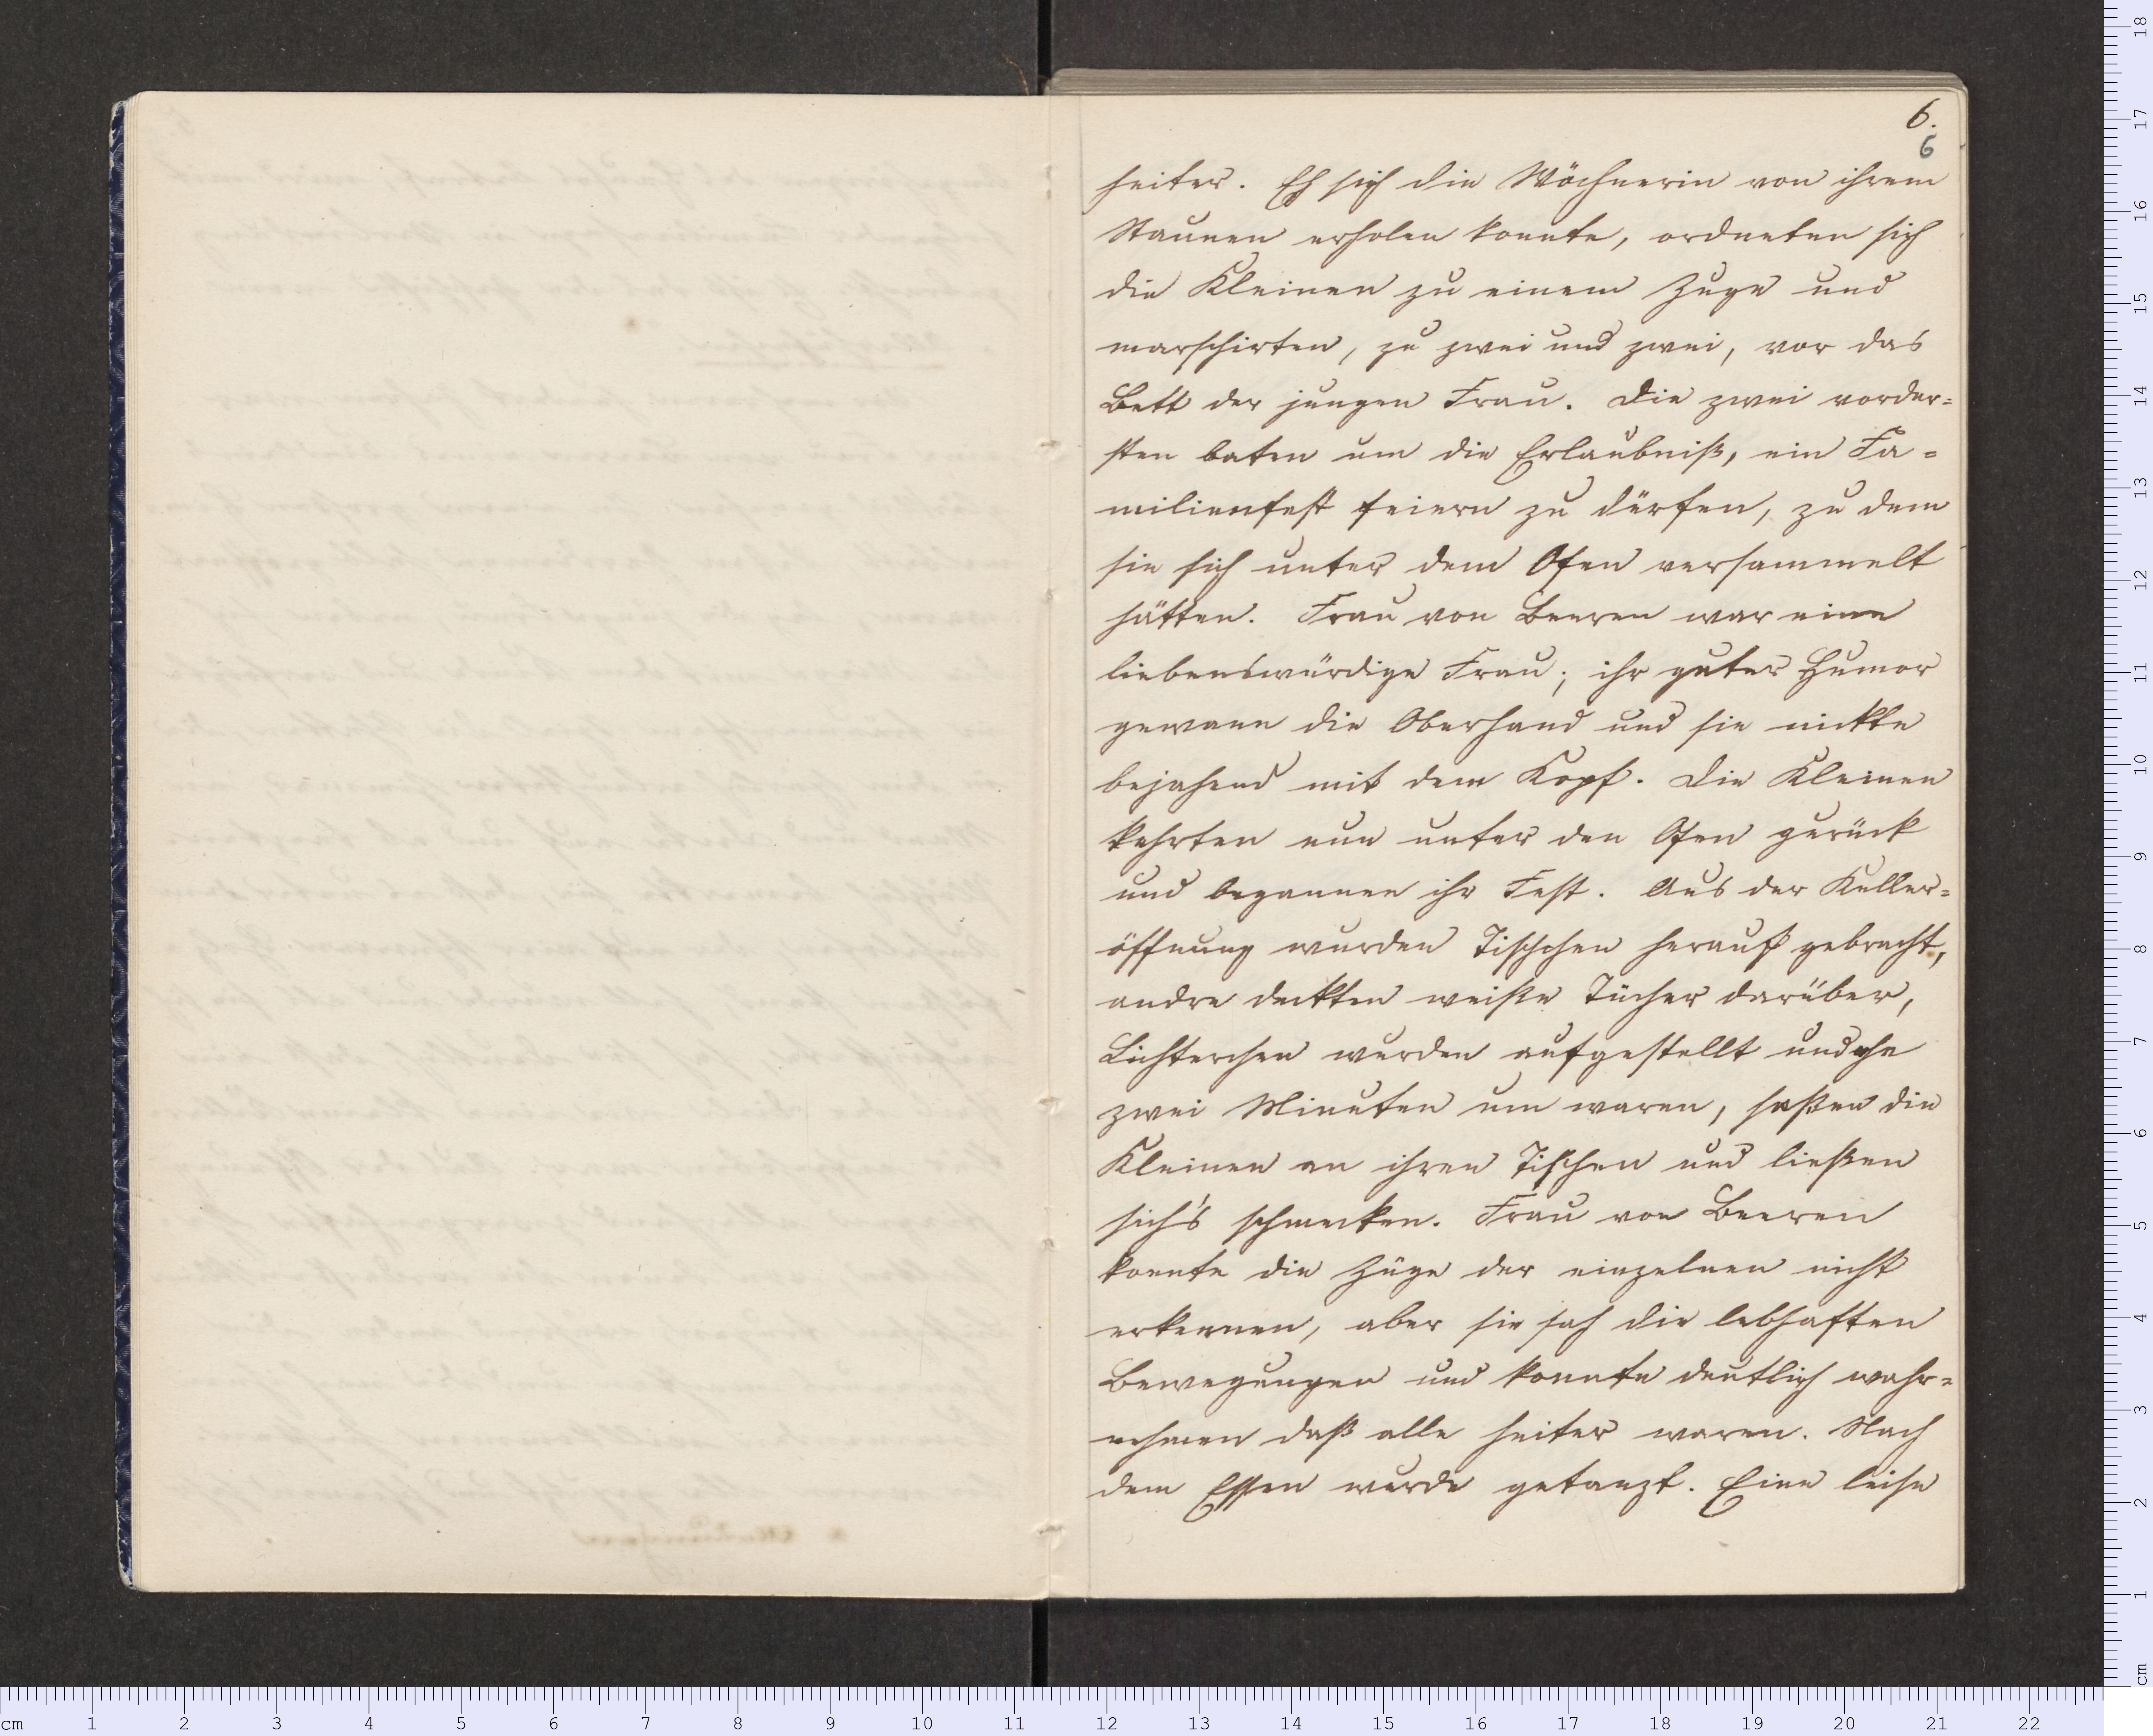 6.
6
heiter. Eh sich die Wöchnerin von ihrem
Staunen erholen konnte, ordneten sich
die Kleinen zu einem Zuge und
marschirten, zu zwei und zwei, vor das
Bett der jungen Frau. Die zwei vorder=
sten baten um die Erlaubniß, ein Fa=
milienfest feiern zu dürfen, zu dem
sie sich unter dem Ofen versammelt
hätten. Frau von Beeren war eine
liebenswürdige Frau; ihr guter Humor
gewann die Oberhand und sie nickte
bejahend mit dem Kopf. Die Kleinen
kehrten nun unter den Ofen zurück
und begannen ihr Fest. Aus der Keller=
öffnung wurden Tischchen herauf gebracht,
andre deckten weiße Tücher darüber,
Lichterchen wurden aufgestellt und ehe
zwei Minuten um waren, saßen die
Kleinen an ihren Tischen und ließen
sich's schmecken. Frau von Beeren
konnte die Züge der einzelnen nicht
erkennen, aber sie sah die lebhaften
Bewegungen und konnte deutlich wahr=
nehmen daß alle heiter waren. Nach
dem Essen wurde getanzt. Eine leise
cm 1 2 3 4 5 6 7 8 9 10 11 12 13 14 15 16 17 18 19 20 21 22
18
17
16
15
14
13
12
11
10
9
8
7
6
5
4
3
2
1
cm